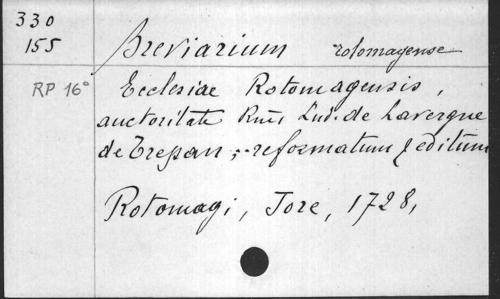 330
155
Breviarium rotomagense
RP 16°
Ecclesiae Rotomagensis,
auctoritate Rmi Lud. de Lavergne
de Tressan ;.. reformatum & editum
Rotomagi, Jore, 1728,